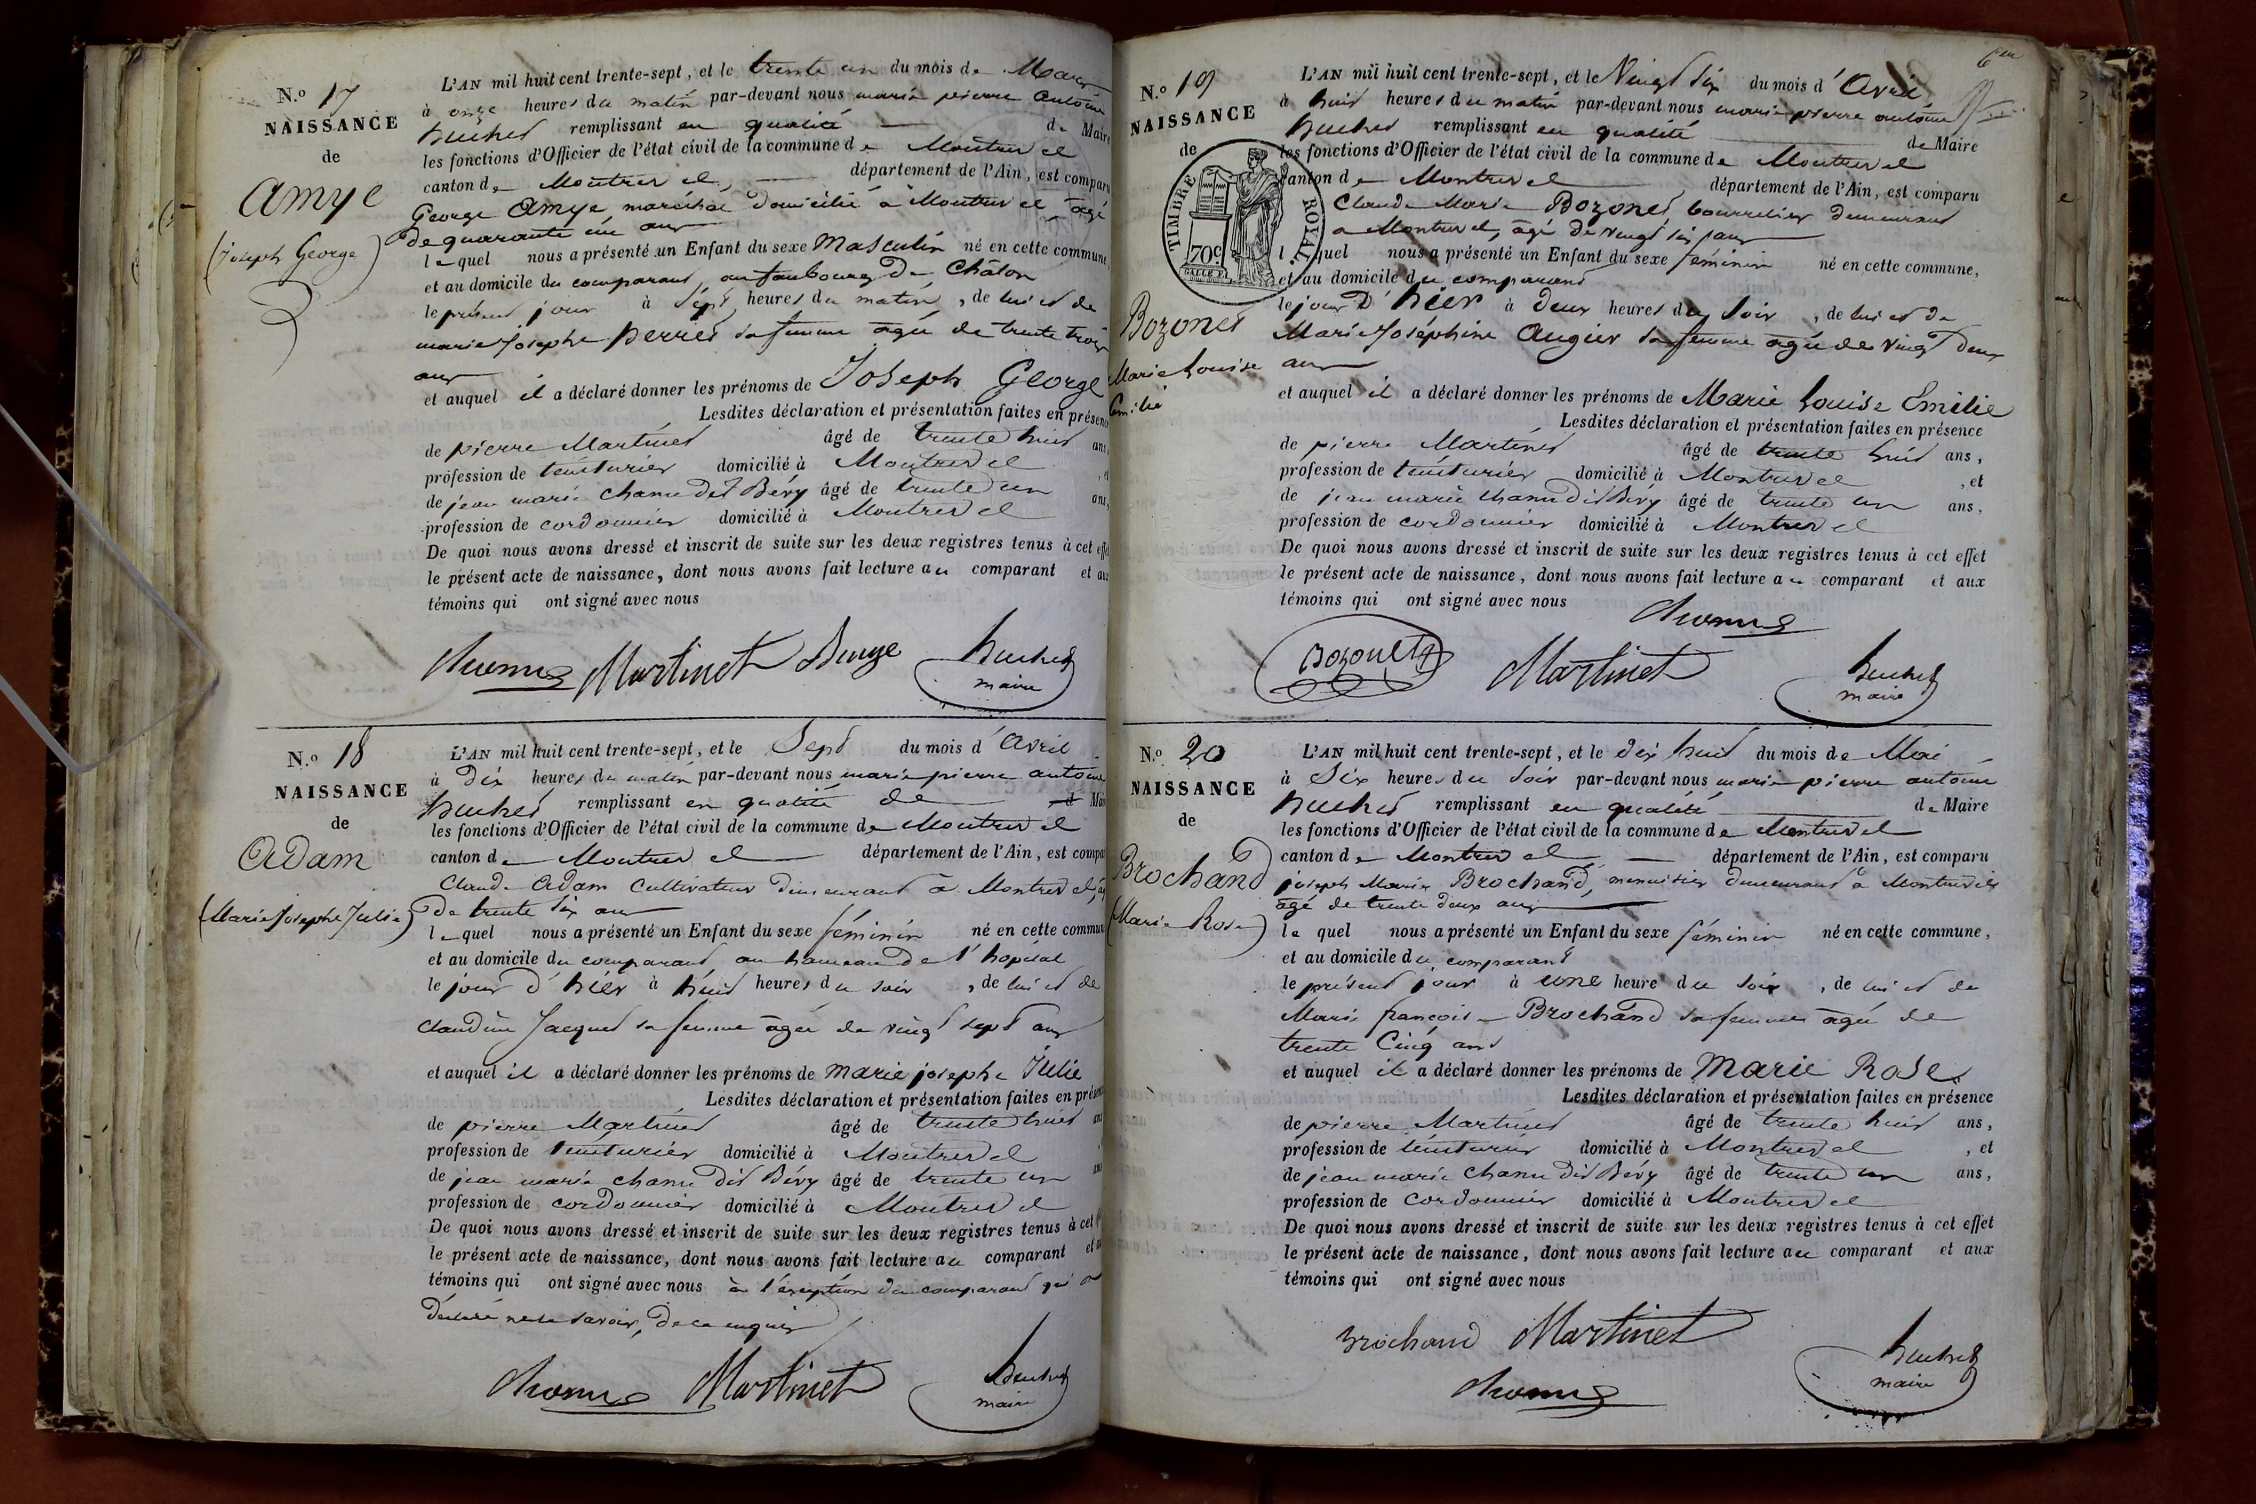 N.o 17
NAISSANCE
de
Amye
(Joseph George)
L'AN mil huit cent trente-sept, et le trente un du mois de Mars
à onze heures du matin par-devant nous marie pierre antoine
huchet remplissant en qualité de Maire
les fonctions d'Officier de l'état civil de la commune de Montrevel
canton de Montrevel, département de l'Ain, est comparu
George Amye maréchal domicilié à Montrevel âgé
de quarante un ans
lequel nous a présenté un Enfant du sexe Masculin né en cette commune,
et au domicile du comparant, au faubourg de Châlon
le présent jour à sept heures du matin, de lui et de
marie Josephe perret sa femme agée de trente trois
ans
et auquel il a déclaré donner les prénoms de Joseph George
Lesdites déclaration et présentation faites en présen
de pierre Martinet âgé de trente huit ans,
profession de teinturier domicilié à Montrevel
de jean marie chanu dit Bévy âgé de trente un ans,
profession de cordonnier domicilié à Montrevel
De quoi nous avons dressé et inscrit de suite sur les deux registres tenus à cet effet
le présent acte de naissance, dont nous avons fait lecture au comparant et aux
témoins qui ont signé avec nous
Martinet huchet
maire
N.o 18
NAISSANCE
de
Adam
(Marie Josephe Julie)
L'AN mil huit cent trente-sept, et le Sept du mois d'Avril
à Dix heures du matin par-devant nous marie pierre antoine
huchet remplissant en qualité de d Mai
les fonctions d'Officier de l'état civil de la commune de Montrevel
canton de Montrevel département de l'Ain, est compa
Claude Adam Cultivateur demeurant à Montrevel, âgé
De trente six ans
lequel nous a présenté un Enfant du sexe féminin né en cette commun
et au domicile du comparant au hameau de l'hopital
le jour d'hier à huit heures du soir, de lui et de
Claudine Jacquet sa femme agée de vingt sept ans
et auquel il a déclaré donner les prénoms de marie josephe Julie
Lesdites déclaration et présentation faites en présen
de pierre Martinet âgé de trente huit ans
profession de teinturier domicilié à Montrevel
de jean marie chanu dit Bévy âgé de trente un ans
profession de cordonnier domicilié à Montrevel
De quoi nous avons dressé et inscrit de suite sur les deux registres tenus à cet
le présent acte de naissance, dont nous avons fait lecture au comparant et
témoins qui ont signé avec nous à l'exception du comparant qui a
déclaré ne le savoir, de ce enquis
Martinet huchet
maire
6me
N.o 19
NAISSANCE
de
TIMBRE ROYAL.
70c
Bozonet
Marie Louise
Emilie
L'AN mil huit cent trente-sept, et le Vingt Six du mois d'Avril
à huit heures du matin par-devant nous marie pierre antoine
huchet remplissant en qualité de Maire
les fonctions d'Officier de l'état civil de la commune de Montrevel
canton de Montrevel département de l'Ain, est comparu
Claude Marie Bozonet, bourrelier demeurant
a Montrevel, âgé de vingt six ans
lequel nous a présenté un Enfant du sexe féminin né en cette commune,
et au domicile du comparant
le jour d'hier à deux heures du soir, de lui et de
Marie Joséphine Augier sa femme agée de vingt deux
ans
et auquel il a déclaré donner les prénoms de Marie Louise Emilie
Lesdites déclaration et présentation faites en présence
de pierre Martinet âgé de trente huit ans,
profession de teinturier domicilié à Montrevel, et
de jean marie chanu dit Bévy âgé de trente un ans,
profession de cordonnier domicilié à Montrevel
De quoi nous avons dressé et inscrit de suite sur les deux registres tenus à cet effet
le présent acte de naissance, dont nous avons fait lecture au comparant et aux
témoins qui ont signé avec nous
Bozonet Martinet huchet
maire
N.o 20
NAISSANCE
de
Brochand
(Marie Rose)
L'AN mil huit cent trente-sept, et le dix huit du mois de Mai
à Six heures du Soir par-devant nous marie pierre antoine
huchet remplissant en qualité de Maire
les fonctions d'Officier de l'état civil de la commune de Montrevel
canton de Montrevel département de l'Ain, est comparu
joseph Marie Brochand, menuisier demeurant à Montrevel
âgé de trente deux ans
le quel nous a présenté un Enfant du sexe féminin né en cette commune,
et au domicile du comparant
le présent jour à une heure du soir, de lui et de
Marie françoise Brochand sa femme agée de
trente Cinq ans
et auquel il a déclaré donner les prénoms de Marie Rose
Lesdites déclaration et présentation faites en présence
de pierre Martinet âgé de trente huit ans,
profession de teinturier domicilié à Montrevel, et
de jean marie chanu dit Bévy âgé de trente un ans,
profession de cordonnier domicilié à Montrevel
De quoi nous avons dressé et inscrit de suite sur les deux registres tenus à cet effet
le présent acte de naissance, dont nous avons fait lecture au comparant et aux
témoins qui ont signé avec nous
Brochand Martinet huchet
maire